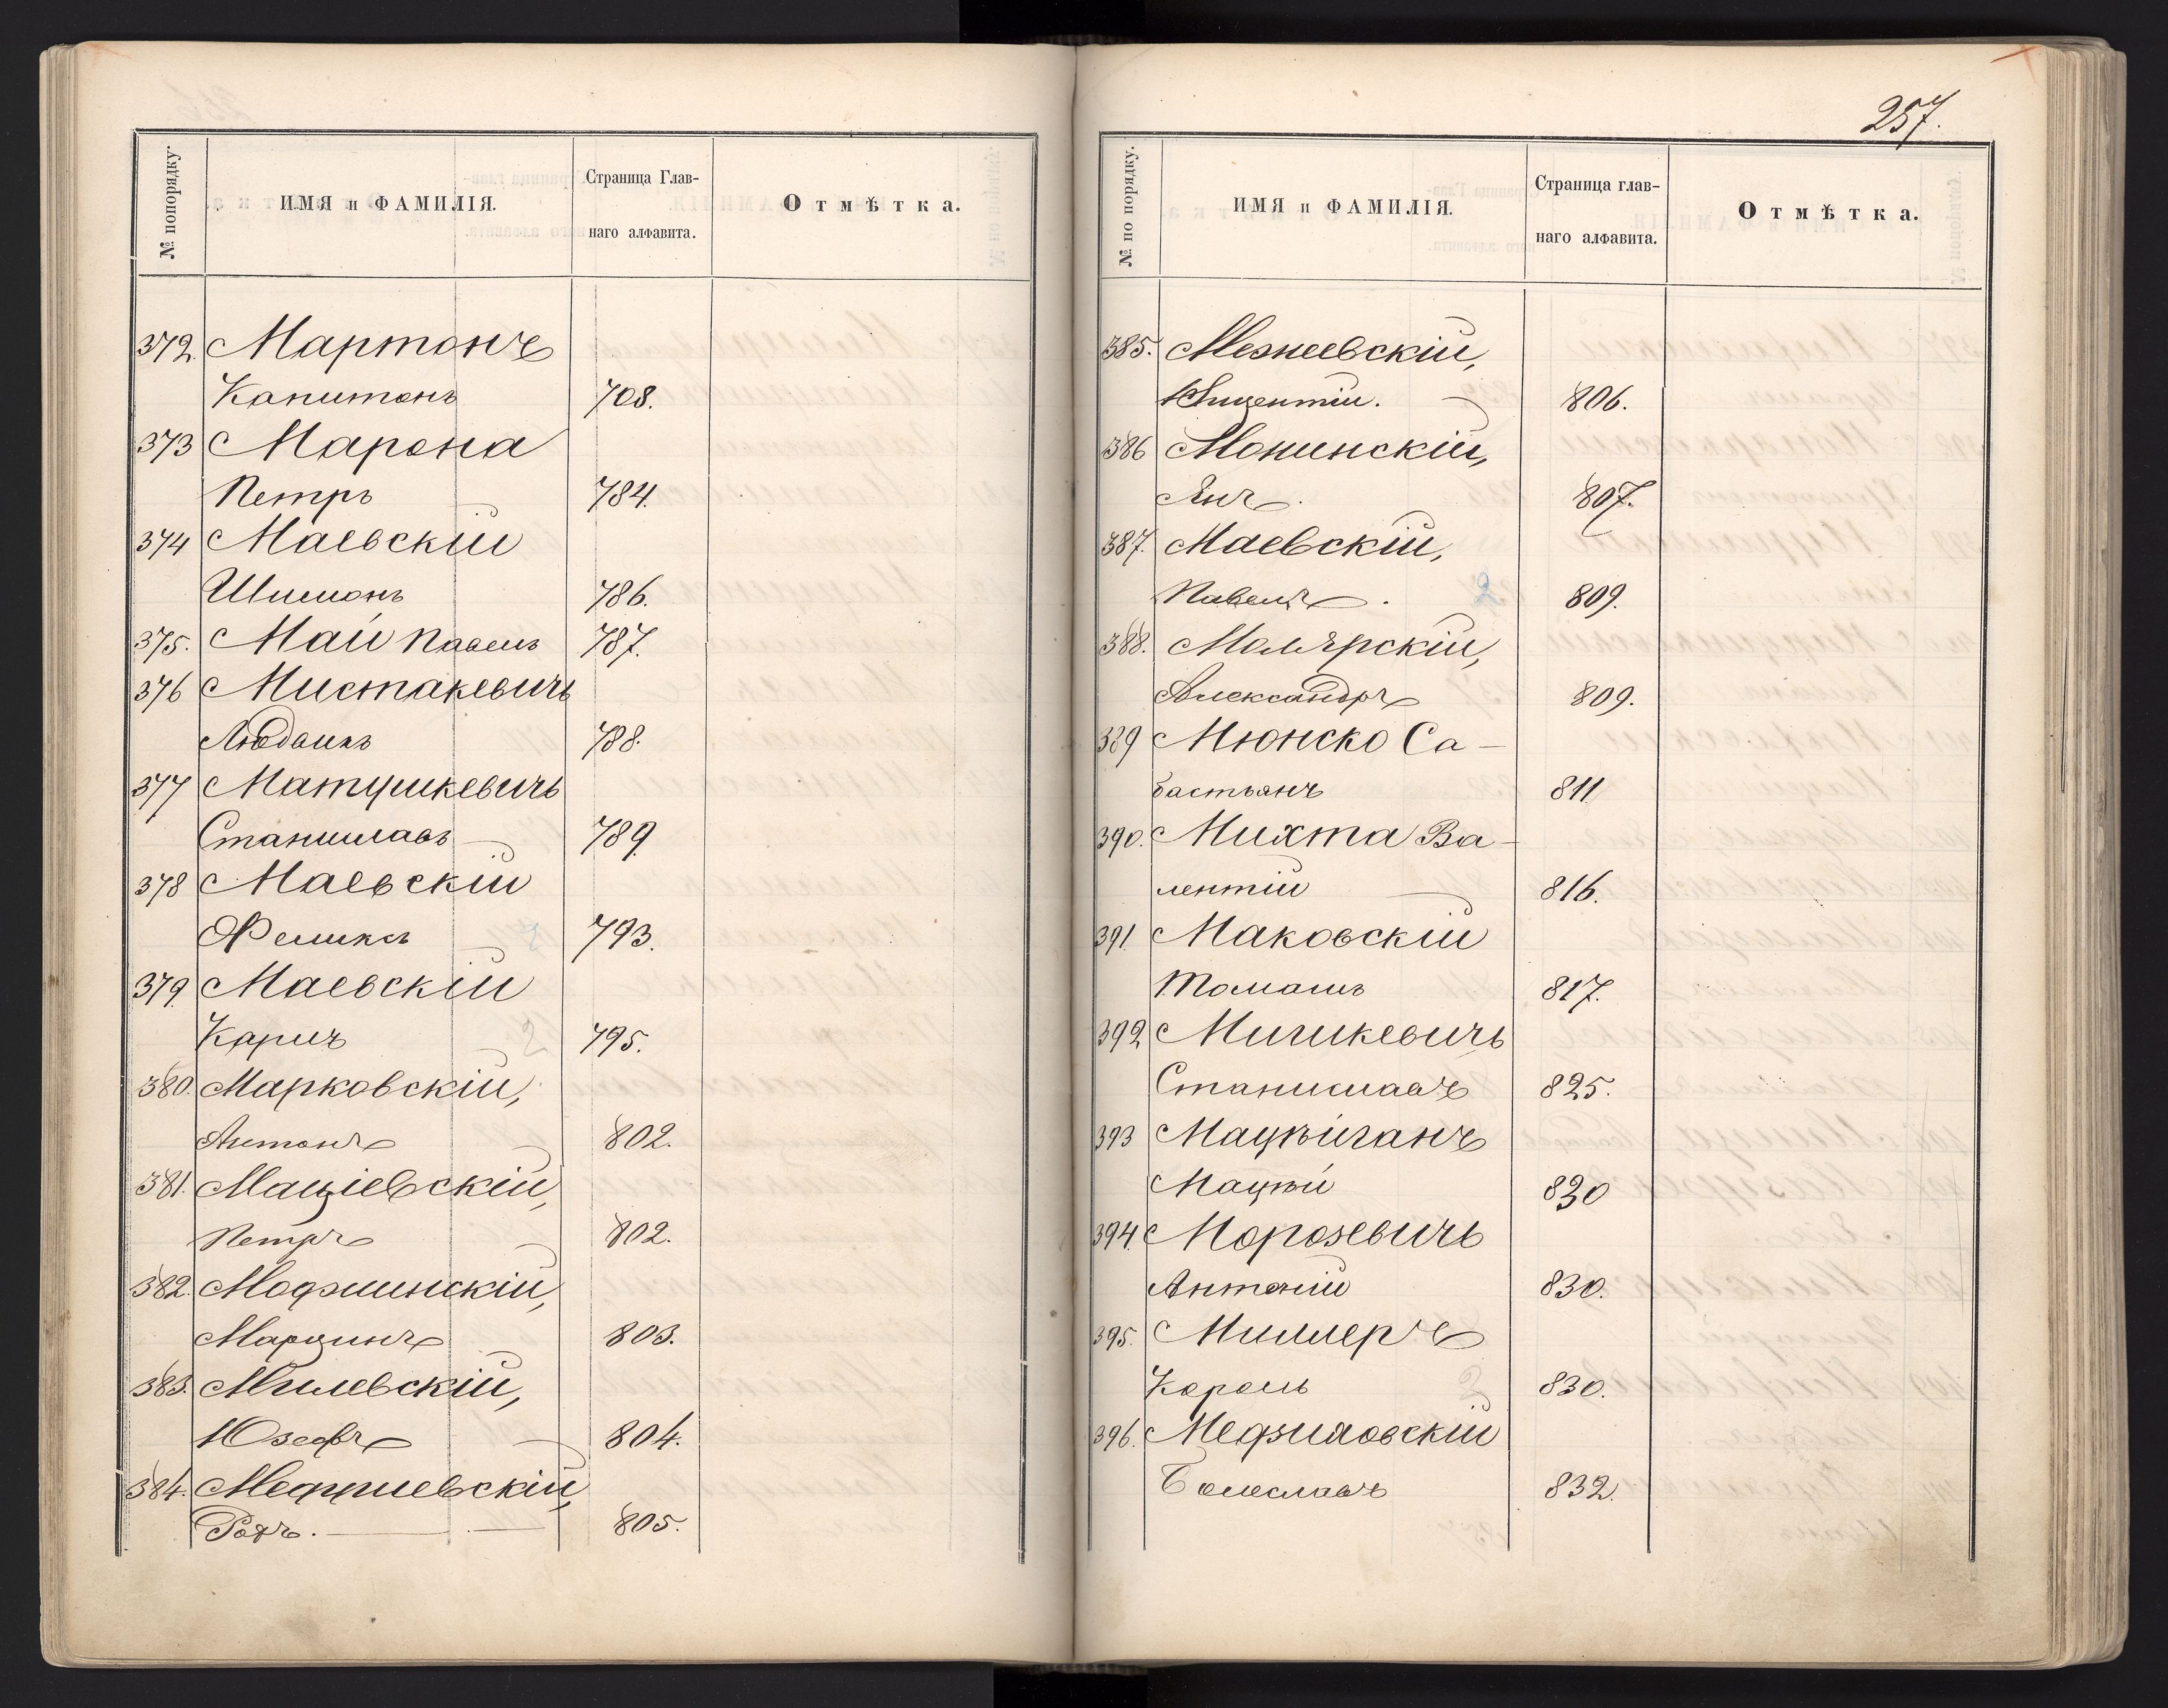 № попорядку.
ИМЯ и ФАМИЛІЯ.
Страница Глав-
наго алфавита.
Отмѣтка.
372. Мартонъ
Капитонъ 708.
373 Марона
Петръ 784.
374 Маевскій
Шимонъ 786.
375. Май Павелъ 787.
376 Мистакевичъ
Людвикъ 788.
377 Матушкевичъ
Станиславъ 789
378 Маевскій
Феликсъ 793.
379 Маевскій
Кариъ 2 795.
380. Марковскій,
Антонъ 802.
381. Маціевскій,
Петръ 802.
382. Модзминскій,
Марцинъ 803.
383. Милевскій,
Юзефъ 804.
384.
805.
257.
№ по порядку.
ИМЯ и ФАМИЛІЯ.
Страница глав-
наго алфавита.
Отмѣтка.
385. Мезнеевскій,
806.
386 Монинскій,
Янъ. 807.
387. Маевскій,
Павелъ. 2 809.
388. Молярскій,
Александръ 809.
389 Мюнско Са-
бастьянъ 811
390. Михта Ва-
лентій 816.
391 Маковскій
Томашъ 817.
392 Мицкевичъ
Станиславъ 825.
393 Мацѣйганъ
Мацѣй 830
394. Морозевичъ
Антоній 830.
395. Миллеръ
Кароль 2 830.
396. Медзиловскій
Болеславъ 832.